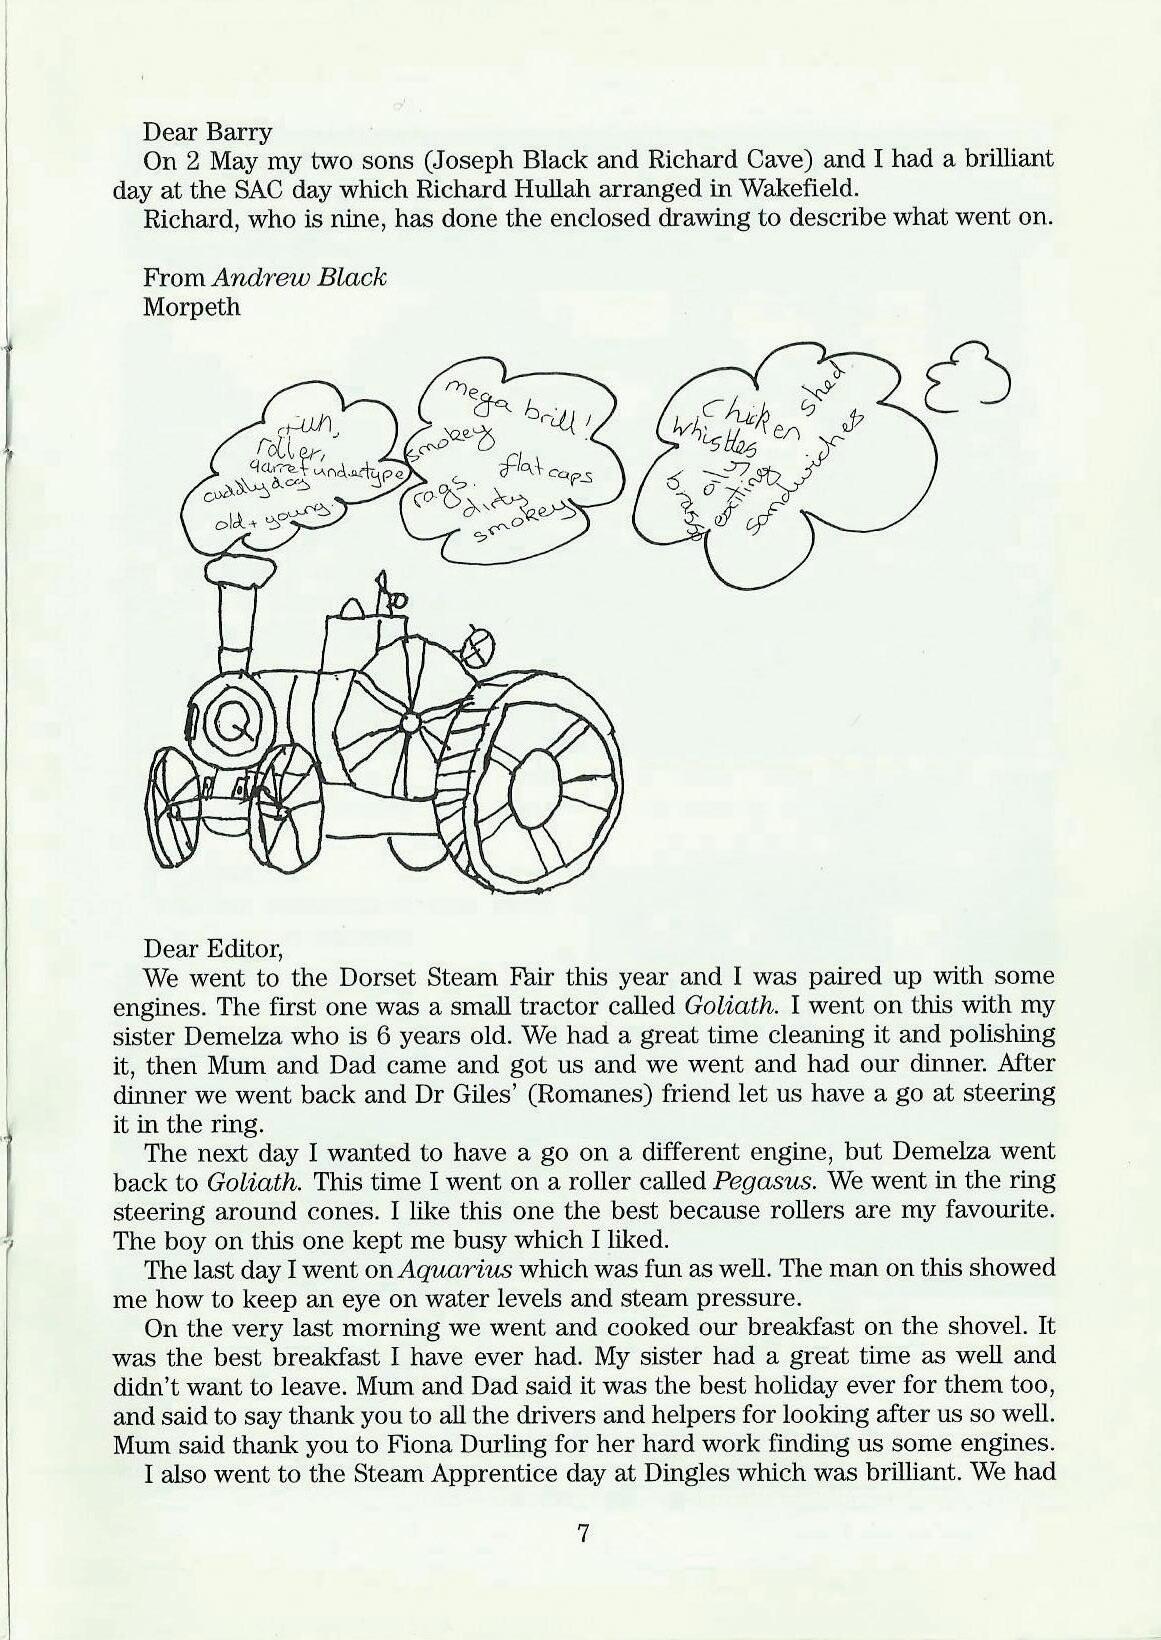 Dear Barry
On 2 May my two sons (Joseph Black and Richard Cave) and I had a brilliant
day at the SAC day which Richard Hullah arranged in Wakefield.
Richard, who is nine, has done the enclosed drawing to describe what went on.
From Andrew Black
Morpeth
fun,
roller,
garret undertype
cuddly dog
old + young
mega brill!
smokey
flat caps
rags.
dirty
smokey
Chicken shed
whistles
oily
brass
exciting
sandwiches
Dear Editor,
We went to the Dorset Steam Fair this year and I was paired up with some
engines. The first one was a small tractor called Goliath. I went on this with my
sister Demelza who is 6 years old. We had a great time cleaning it and polishing
it, then Mum and Dad came and got us and we went and had our dinner. After
dinner we went back and Dr Giles' (Romanes) friend let us have a go at steering
it in the ring.
The next day I wanted to have a go on a different engine, but Demelza went
back to Goliath. This time I went on a roller called Pegasus. We went in the ring
steering around cones. I like this one the best because rollers are my favourite.
The boy on this one kept me busy which I liked.
The last day I went on Aquarius which was fun as well. The man on this showed
me how to keep an eye on water levels and steam pressure.
On the very last morning we went and cooked our breakfast on the shovel. It
was the best breakfast I have ever had. My sister had a great time as well and
didn't want to leave. Mum and Dad said it was the best holiday ever for them too,
and said to say thank you to all the drivers and helpers for looking after us so well.
Mum said thank you to Fiona Durling for her hard work finding us some engines.
I also went to the Steam Apprentice day at Dingles which was brilliant. We had
7